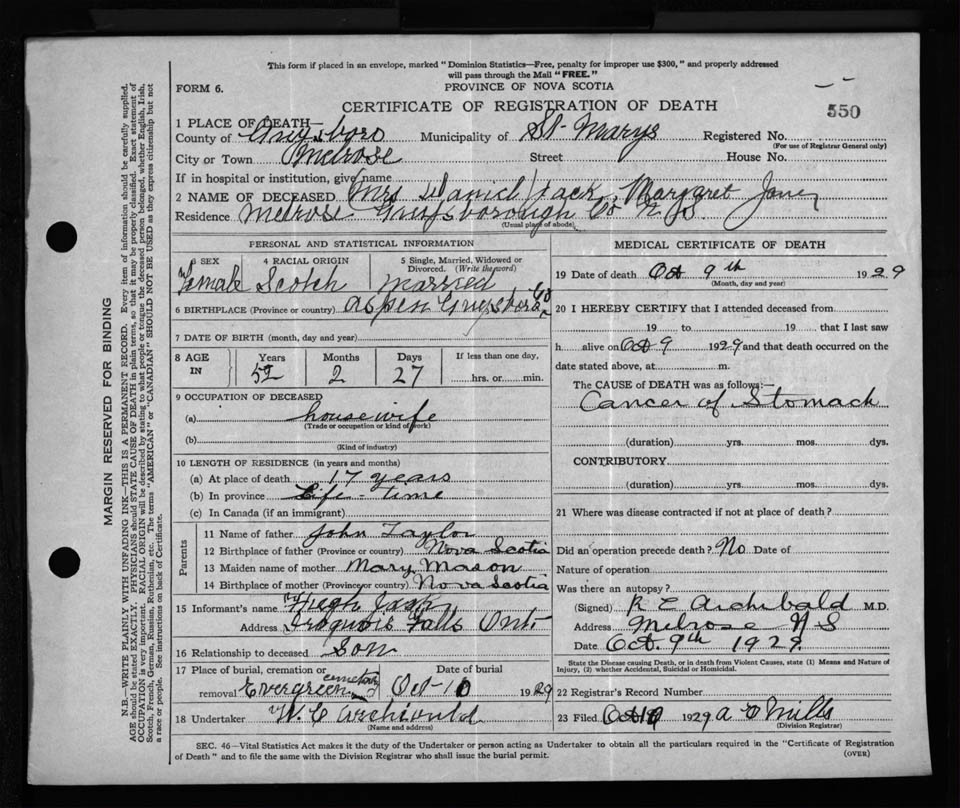 This form if placed in an envelope, marked "Dominion Statistics—Free, penalty for improper use $300," and properly addressed
will pass through the Mail "FREE."
FORM 6.
PROVINCE OF NOVA SCOTIA
CERTIFICATE OF REGISTRATION OF DEATH
550
1 PLACE OF DEATH—
County of Guysboro Municipality of St. Marys Registered No.
(For use of Registrar General only)
City or Town Melrose Street House No.
If in hospital or institution, give name
2 NAME OF DECEASED Mrs Daniel Jack, Margaret Jane
Residence Melrose Guysborough Co N.S.
(Usual place of abode)
PERSONAL AND STATISTICAL INFORMATION
3 SEX 4 RACIAL ORIGIN 5 Single, Married, Widowed or Divorced. (Write the word)
Female Scotch Married
6 BIRTHPLACE (Province or country) Aspen Guysboro Co
7 DATE OF BIRTH (month, day and year)
8 AGE IN Years Months Days If less than one day,
52 2 27 hrs. or min.
9 OCCUPATION OF DECEASED
(a) housewife
(Trade or occupation or kind of work)
(b)
(Kind of industry)
10 LENGTH OF RESIDENCE (in years and months)
(a) At place of death 17 years
(b) In province Life-time
(c) In Canada (if an immigrant)
Parents
11 Name of father John Taylor
12 Birthplace of father (Province or country) Nova Scotia
13 Maiden name of mother Mary Mason
14 Birthplace of mother (Province or country) Nova Scotia
15 Informant's name Hugh Jack
Address Iroquois Falls Ont
16 Relationship to deceased Son
17 Place of burial, cremation or removal Evergreen cemetery Date of burial Oct-10 1929
18 Undertaker W. C Archibald
(Name and address)
MEDICAL CERTIFICATE OF DEATH
19 Date of death Oct 9th 1929
(Month, day and year)
20 I HEREBY CERTIFY that I attended deceased from
19 to 19 that I last saw
h alive on Oct 9 1929 and that death occurred on the
date stated above, at m.
The CAUSE of DEATH was as follows:—
Cancer of Stomach
(duration) yrs. mos. dys.
CONTRIBUTORY
(duration) yrs. mos. dys.
21 Where was disease contracted if not at place of death?
Did an operation precede death? No Date of
Nature of operation
Was there an autopsy?
(Signed) R E Archibald M.D.
Address Melrose N S
Date Oct. 9th 1929.
State the Disease causing Death, or in death from Violent Causes, state (1) Means and Nature of
Injury, (2) whether Accidental, Suicidal or Homicidal.
22 Registrar's Record Number
23 Filed Oct 10 1929 Mills
(Division Registrar)
SEC. 46—Vital Statistics Act makes it the duty of the Undertaker or person acting as Undertaker to obtain all the particulars required in the "Certificate of Registration
of Death" and to file the same with the Division Registrar who shall issue the burial permit.
(OVER)
MARGIN RESERVED FOR BINDING
N.B.—WRITE PLAINLY WITH UNFADING INK—THIS IS A PERMANENT RECORD. Every item of information should be carefully supplied.
AGE should be stated EXACTLY. PHYSICIANS should STATE CAUSE OF DEATH in plain terms, so that it may be properly classified. Exact statement of
OCCUPATION is very important. RACIAL ORIGIN will be described by stating to what people or tongue the deceased person belonged, whether English, Irish,
Scotch, French, German, Russian, Ruthenian, etc. The terms "AMERICAN" or "CANADIAN" SHOULD NOT BE USED as they express citizenship but not
a race or people. See instructions on back of Certificate.